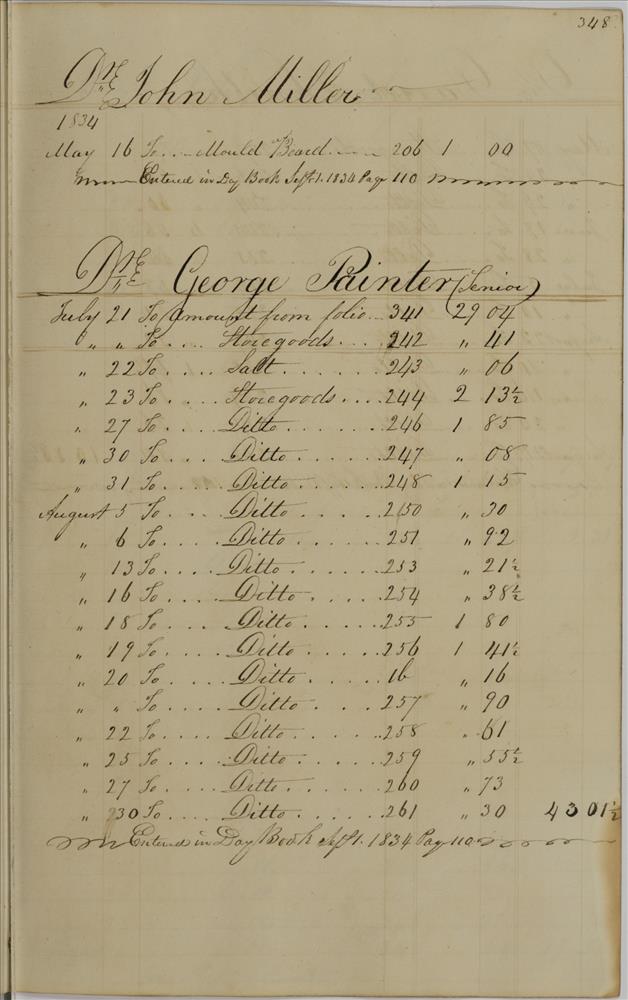 348
Dr. John Miller
1834
May 16 To Mould Board 206 1 00
Entered in Day Book Sept. 1. 1834 Page 110
Dr. George Painter (Senior)
July 21 To amount from folio 341 29 04
" " To .... Storegoods .... 242 " 41
" 22 To .... Salt ...... 243 " 06
" 23 To .... Storegoods .... 244 2 13½
" 27 To .... Ditto ...... 246 1 85
" 30 To .... Ditto ...... 247 " 08
" 31 To .... Ditto ...... 248 1 15
August 5 To .... Ditto ...... 250 " 30
" 6 To .... Ditto ...... 251 " 92
" 13 To .... Ditto ...... 253 " 21½
" 16 To .... Ditto ...... 254 " 38½
" 18 To .... Ditto ...... 255 1 80
" 19 To .... Ditto ...... 256 1 41½
" 20 To .... Ditto ...... Ib " 16
" " To .... Ditto .... 257 " 90
" 22 To .... Ditto ...... 258 " 61
" 25 To .... Ditto ...... 259 " 55½
" 27 To .... Ditto ...... 260 " 73
" 30 To .... Ditto ...... 261 " 30 43 01½
Entered in Day Book Sept. 1. 1834 Pag 110